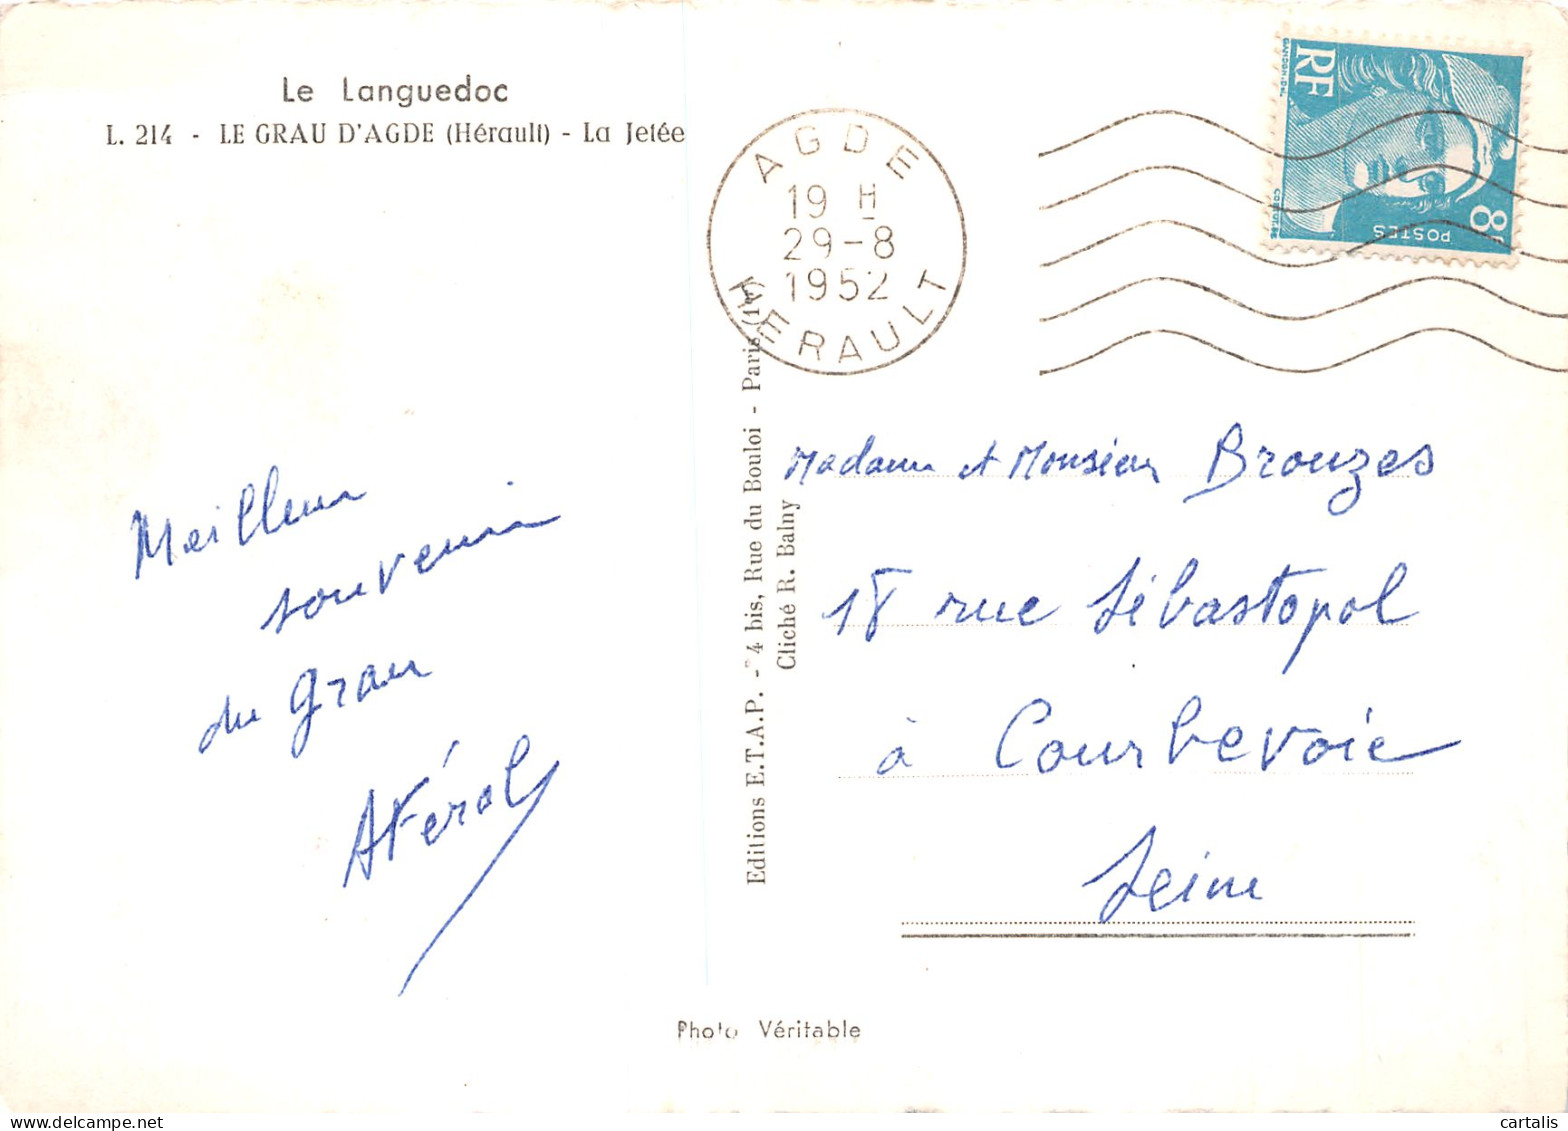 Le Languedoc
L. 214 - LE GRAU D'AGDE (Hérault) - La Jetée
Meilleur
souvenir
du Grau
AFéral
AGDE
19 H
29-8
1952
HERAULT
RF
8F
POSTES
Editions E.T.A.P. - 4 bis, Rue du Bouloi - Paris (1er)
Cliché R. Balny
Madame et Monsieur Brouzes
18 rue Sébastopol
à Courbevoie
Seine
Photo Véritable
www.delcampe.net
cartalis